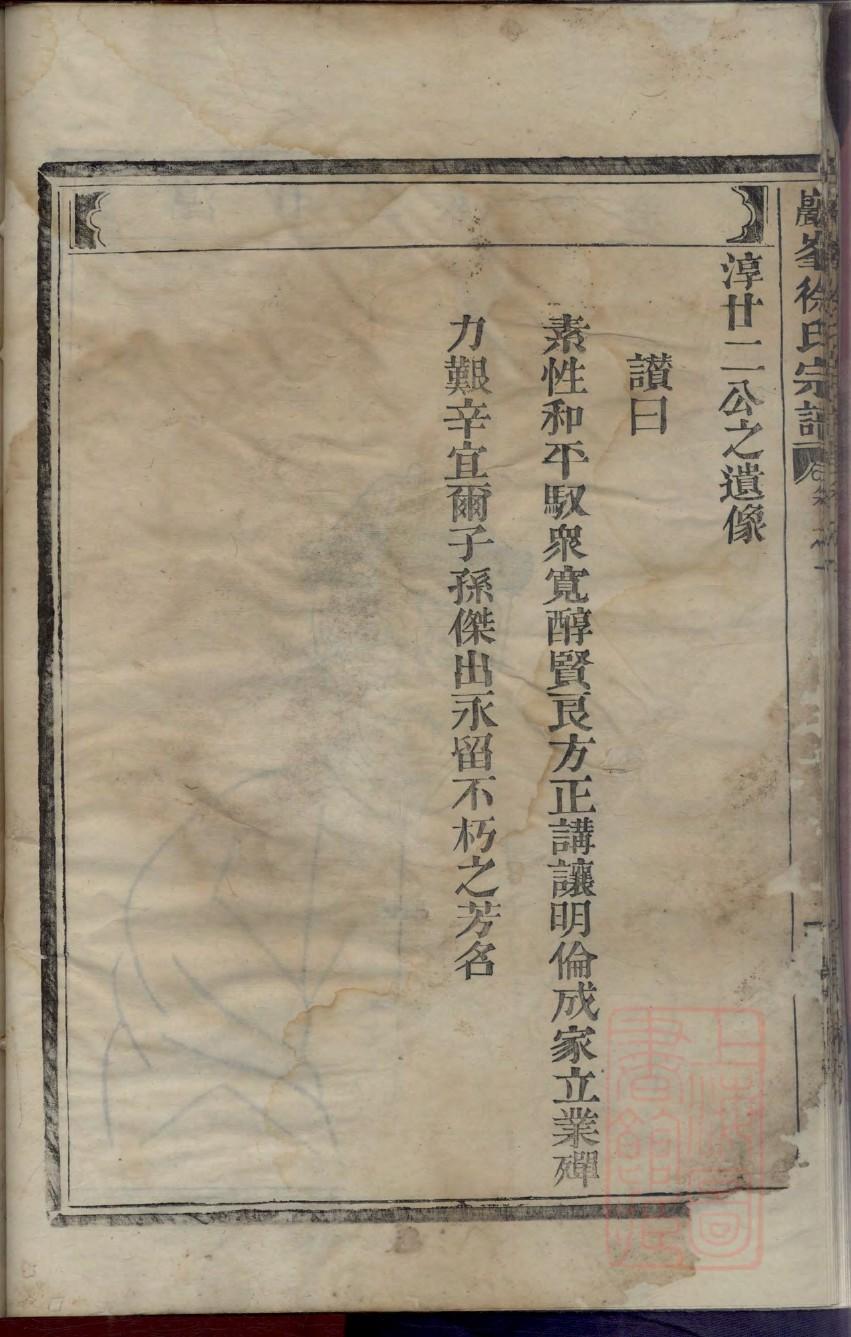 巖峯徐氏宗譜
淳廿二公之遺像
讚曰
素性和平馭衆寛醇賢良方正講讓明倫成家立業殫
力艱辛宜爾子孫傑出永留不朽之芳名
上海圖書館藏